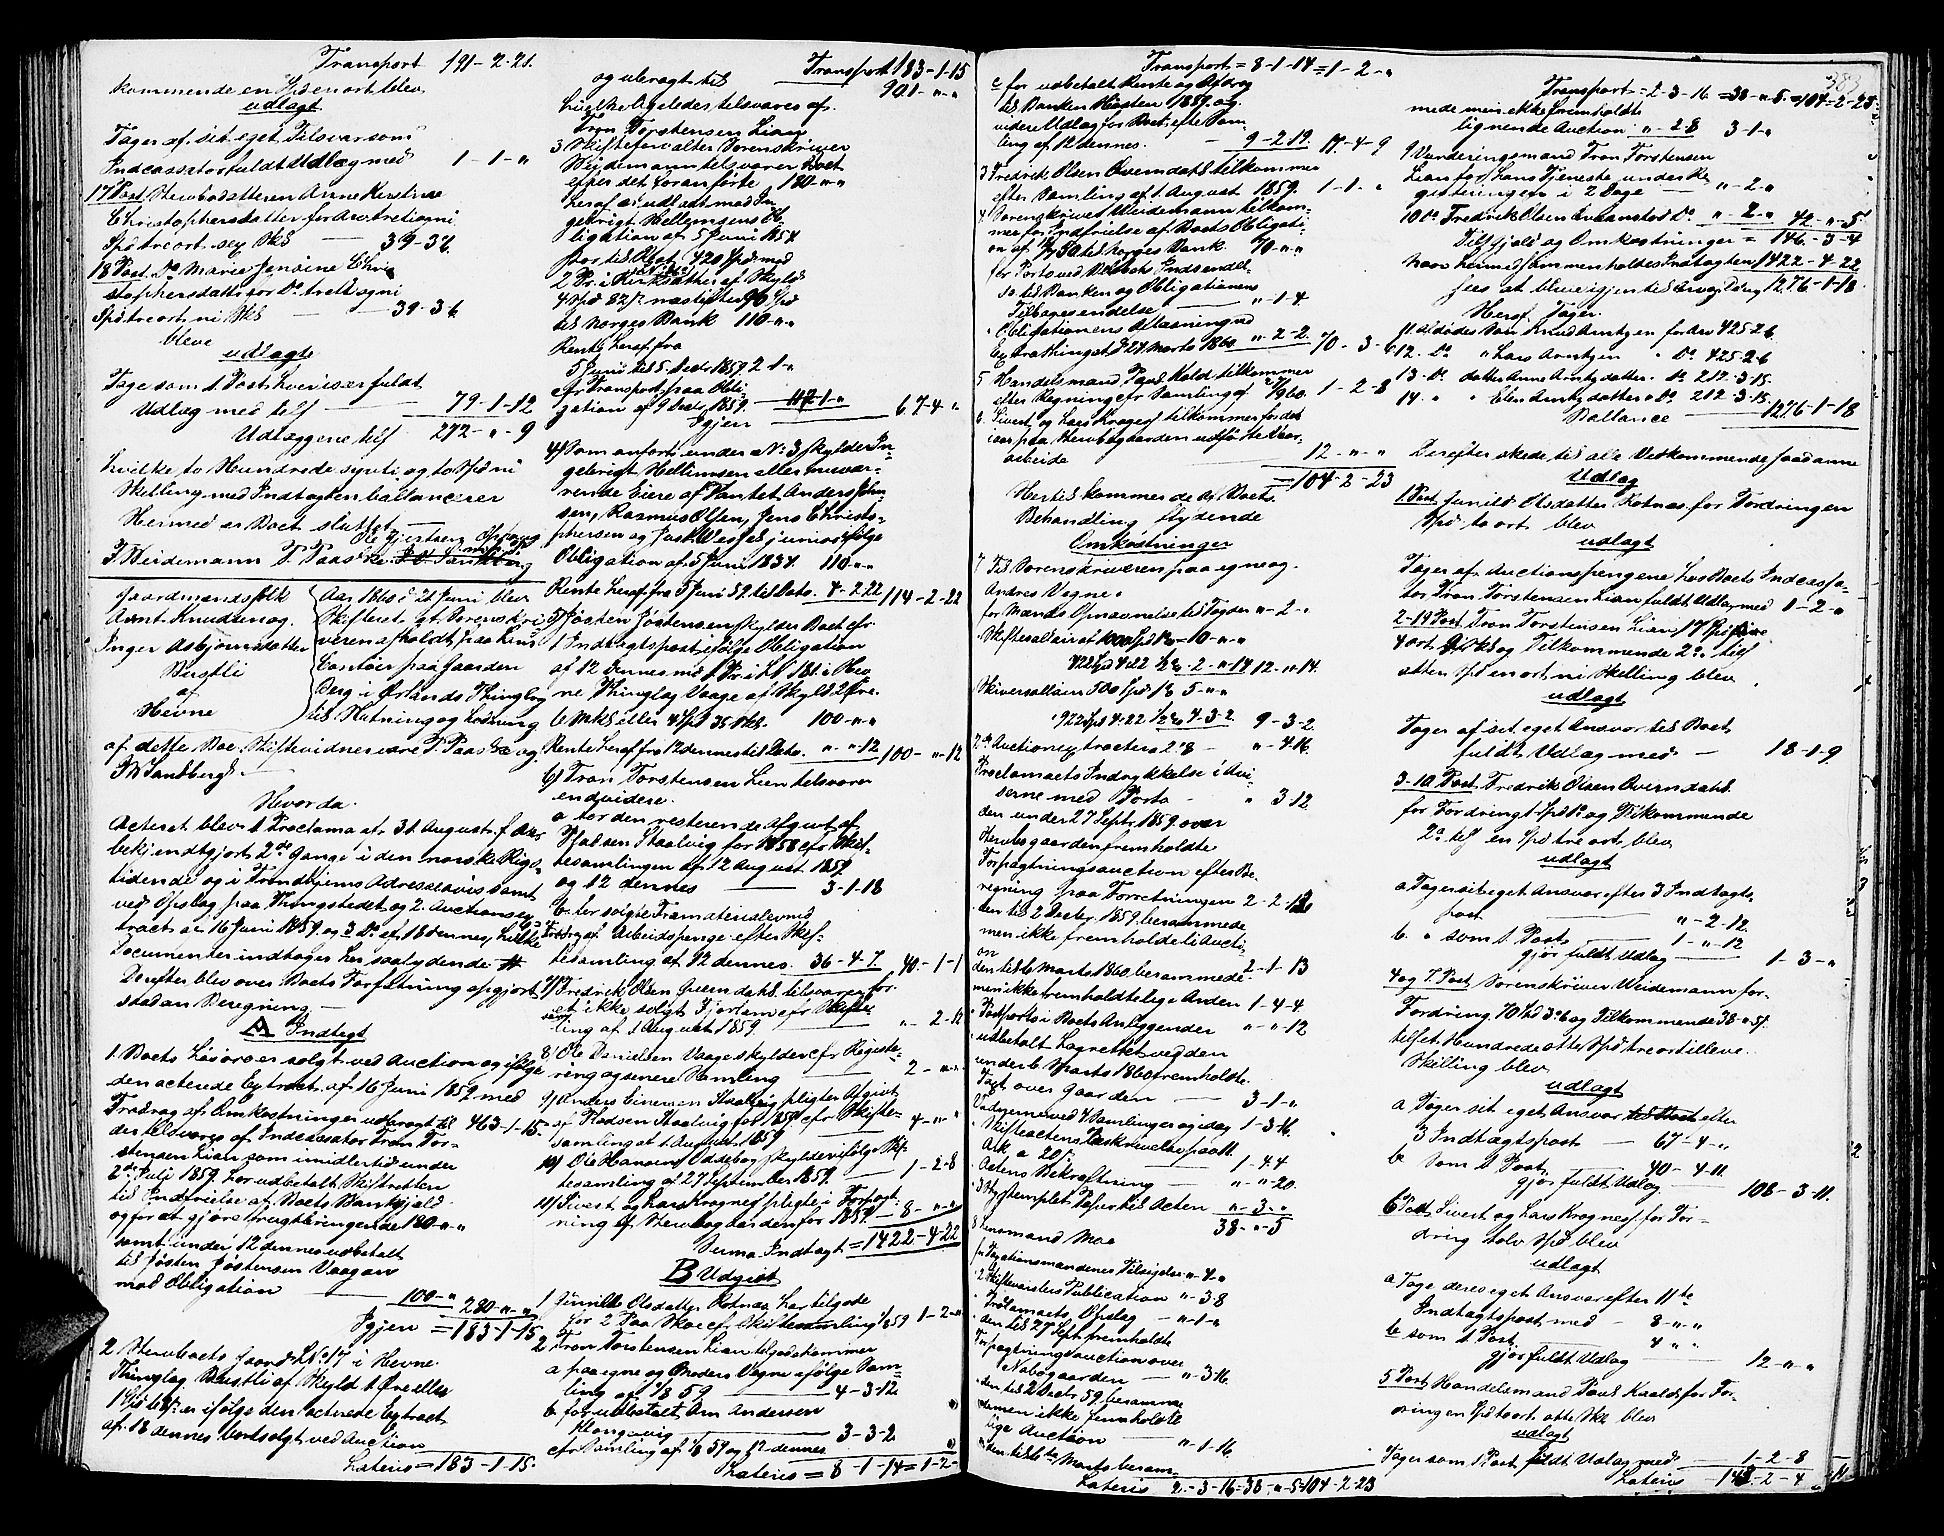 Transport 191-2-21.
kommende en Spd en ort blev
udlagt
Tager af sit eget Tilsvar som
Indcassator fuldt Udlæg med 1-1-"
17 Post Stervbodatteren Anne Kirstine
Christophersdatter for Arv tretioni
Spd tre ort sex Sk 39-3-6.
18 Post Do Marie Jensine Chri-
stophersdatter for Do tretiogni
Spd tre ort ni Sk 39-3-6.
bleve
udlagte
Tage som 1 Post hver især fuldt
Udlæg med tils 79-1-12
Udlæggene tils 272-"-9
hvilke to Hundrede sytti og to Spd ni
Skilling med Indtægten ballancerer
Hermed er Boet sluttet
J Weidemann P. Paaske
Gaardmandsfolk
Arnt Knudsen og
Inger Asbjørnsdatter
Bustli
af
Hevne
Aar 1860 d 21 Juni blev
Skifteret af Sorenskri
veren afholdt paa hans
Contoir paa Gaarden
Berg i Ørlands Thinglag
til Slutning og Lodning
af dette Boe. Skiftevidner vare P. Paaske og
J W Sandberg.
Hvor da
Acteret blev 1 Proclama af 31 August f Aar
bekjendtgjort 2de Gange i den norske Rigs-
tidende og i Trondhjems Adresseavis samt
ved Opslag paa Thingstedet og 2 Auctionsex
tracter af 16 Juni 1859 og 3 Do af 18 dennes, hvilke
Documenter indtages her saalydende #
Derefter blev over Boets Forfatning opgjort
saadan Beregning
A Indtægt
1. Boets Løsøre er solgt ved Auction og ifølge
den acterede Extract af 16 Juni 1859 med
Fradrag af Omkostninger udbragt til 463-1-15.
der tilsvares af Indcassator Tron Tor-
stensen Lian som imidlertid under
2den Juli 1859 har udbetalt Skifteretten
til Indfrielse af Boets Bankgjæld
og for at gjøre frugtbringende 180-"-"
samt under 12 dennes udbetalt
til Jøsten Jøstensen Vaagan
mod Obligation 100-"-" 280-"-"
Igjen = 183-1-15
2 Stervboets Gaard L No 17 i Hevne
Thinglag Bustli af Skyld 1 Øre eller
er ifølge den acterede Extract
af 18 dennes bortsolgt ved Auction
Lateris = 183-1-15.
Transport 183-1-15
og ubragt til 901-"-"
hvilke ligeledes tilsvares af
Tron Torstensen Lian
3 Skifteforvalter Sorenskriver
Weidemann tilsvarer Boet
efter det foranførte 180-"-"
heraf er udlaant mod In
gebrigt Hellemsens Ob
ligation af 5 Juni 1854
stor til Rest 420 Spd med
2 Pr. i Kirksæther af Skyld
4 Spd 82 næstefter 96 Spd
til Norges Bank 110-"-"
Rente heraf fra
5 Juni til 5 Decbr 1859 2-1-"
efr Transport paa Obli-
gation af 9 Decbr 1859 112-1-"
Igjen 67-4-"
4) Som anført under No 3 skylder In-
gebrigt Hellemsen eller nuvæ-
rende Eiere af Pantet Anders John
sen, Rasmus Olsen, Jens Christo-
phersen og Just Wessel junior ifølge
Obligation af 5 Juni 1854 110-"-"
Rente heraf fra 5 Juni 59 til Dato 4-2-22 114-2-22
5) Jøsten Jøstensen skylder Boet efr
1 Indtægtspost ifølge Obligation
af 12 dennes mod 1 Pr. i L No 181 i Hev
ne Thinglag Vaage af Skyld 2 Øre
6 Mk eller 4 Spd 35 Sk. 100-"-"
Rente heraf fra 12 dennes til Dato "-"-12 100-"-12
6) Tron Torstensen Lien tilsvarer
endvidere
a for den resterende Afgivt af
Pladsen Staalvig for 1858 efr Skif-
tesamlingen af 12 August 1859
og 12 dennes 3-1-18
b. for solgte Framaterialer med
Fradrag af Arbeidspenge efter Skif-
tesamling af 12 dennes 36-4-7 40-1-1
7) Fredrik Olsen Øverndahl tilsvarer for
et ikke solgt Fjortem efr Skifte
samling af 1 August 1859 "-2-12
8) Ole Danielsen Vaage skylder efr Registe-
ring og senere Samling 2-"-"
9) Anders Einersen Staalvig pligter Afgivt
af Pladsen Staalvig for 1859 efr Skifte-
samling af 1 August 1859 4-"-"
10) Ole Hansens Oddebog skylder ifølge Skif-
tesamling af 27 September 1859 1-2-8
11) Sivert og Lars Kragnes pligte i Forpagt
ning af Stervbogaarden for 1859 8-"-"
Summa Indtægt = 1422-4-22
B Udgivt
1 Gunilde Olsdatter Rotnaa har tilgode
for 2 Par Skoe efr Skiftesamling 1/8 59 1-2-"
2 Tron Torstensen Lian tilgodekommer
a paa egne og Broders Vegne ifølge Sam-
ling af 1/8 59 4-3-12
b for udbetalt Arn Andersen
Klongevig 3-3-2
efr Samling af 1/8 59 og 12 dennes
Lateris = 8-1-14 = 1-2-"
Transport = 8-1-14 = 1-2-"
c for udbetalt Rente og Afdrag
til Banken Høsten 1859 og
videre Udlæg for Boet efter Sam-
ling af 12 dennes. 9-2-19 17-4-9
3 Fredrik Olsen Øverndahl tilkommer
efter Samling af 1 August 1859 1-1-"
4 Sorenskriver Weidemann tilkom-
mer for Indfrielse af Boets Obligati-
on af til Norges Bank 70-"-"
for Porto ved Beløbets Indsendel-
se til Banken og Obligationens
Tilbagesendelse "-1-4
Obligationens Aflæsning ved
Extrathinget d 24 Marts 1860 "-2-2 70-3-6
5 Handelsmand Paul Kold tilkommer
efter Regning efr Samling af 1-2-8
6. Sivert og Lars Kragnes tilkommer for det
i aar paa Stervbogaarden udførte Vaar-
arbeide 12-"-"
= 104-2-23
Hertil kommer de af Boets
Behandling flydende
Omkostninger
7 Til Sorenskriveren paa egne og
Andres Vegne.
for Mænds Opnævnelse til Taxten "-2-"
Skiftesallair af 1000 Spd 1% = 10-"-"
422 Spd 4-22 ½% 2-"-14 12-"-14.
Skriversallair 500 Spd 1% 5-"-"
922 Spd 4-22 ½% 4-3-2 9-3-2
2de Auctionsextracter "-4-16.
Proclamaets Indrykkelse i Avi-
serne med Porto " 3 12
den under 27 Septr 1859 over
Stervbogaarden fremholdte
Forpagtningsauction efter Be-
regning paa Forretningen 2-2-12
den til 2 Decbr 1859 berammede
men ikke fremholdte Li Aucti-
on
den til 6 Marts 1860 berammede 2-1-13
men ikke fremholdte lige Anden 1-4-4
Postporto i Boets Anliggender "-"-12
udbetalt Lagrettet ved den
under 6 Marts 1860 fremholdte
Taxt over Gaarden 3-1-"
Vidnerne ved 4 Samlinger og idag 1-3-16.
Skifteactens Beskrivelse paa 11
Ark a 20 1-4-4
Actens Bekræftning "-"-20.
3 Stk stemplet Papir til Acten "-3-"
38-"-5
8 Lensmand Moe
for Taxationsmændenes Tilsigelse "-4-"
2 Skiftevarslers Publication "-3-8
Proclamaets Opslag "-1-"
den til 27 Septr fremholdte
Forpagtningsauction over
Nabogaarden "-3-16.
den til 2 Decbr 59 beramme
de men ikke fremholdte
lige Auction "-1-16
den til 6te Marts beram-
Lateris 2-3-16=38-"-5=104-2-23
383
Transport=2-3-16=38-"-5=104-2-23
mede men ikke fremholdte
lignende Auction "-2-8 3-1-"
9 Vurderingsmand Tron Torstensen
Lian for hans Tjeneste under Re
gistreringen i 2 Dage "-2-"
10 Do Fredrik Olsen Do "-2-" 42-"-5
Tils Gjæld og Omkostninger = 146-3-4
naar hermed sammenholdes Indtægten 1422-4-22
sees at blive igjen til Arv og Deling 1276-1-18
Heraf Tager
11 afdødes Søn Knud Arntzen for Arv 425-2-6
12 Do " Lars Arntzen " Do 425-2-6
13 Do datter Anne Arntsdatter " Do 212-3-15.
14 " " Elen Arntsdatter " Do 212-3-15.
Ballance 1276-1-18
Derefter skede til alle Vedkommende saadanne
Udlæg
1 Post Gunild Olsdatter Rotnaa for Fordring en
Spd to ort blev
udlagt
Tager af Auctionspengene hos Boets Indcassa-
tor Tron Torstensen Lian fuldt Udlæg med 1-2-"
2-14 Post Tron Torstensen Lian 17 Spd
4 ort 9 Sk og Tilkommende 2 tils
atten Spd en ort ni Skilling blev
udlagt
Tager af sit eget Ansvar til Boet
fuldt Udlæg med 18-1-9
3-10 Post Fredrik Olsen Øverndahl
for Fordring 1 Spd 1 og Tilkommende
2 tils en Spd tre ort blev
udlagt
a Tager sit eget Ansvar efter 7 Indtægts
post "-2-12
b. " som 1 Post 1-"-12
gjør fuldt Udlæg 1-3-"
4 og 7 Post Sorenskriver Weidemann for-
Fordring 70 Spd 3 6 og Tilkommende 38-"-5
tils et Hundrede otte Spd tre ort elleve
Skilling blev
udlagt
a Tager sit eget Ansvar til Boet efter
3 Indtægtspost 67-4-"
b Som 1 Post 40-4-11
gjør fuldt Udlæg 108-3-11.
6 Post Sivert og Lars Kragnes for For-
dring tolv Spd blev
udlagt
a Tage deres eget Ansvar efter 11te
Indtægtspost med 8-"-"
b som 1 Post 4 " "
gjør fuldt Udlæg 12-"-"
5 Post Handelsmand Paul Kaald for For-
dring en Spd to ort otte Sk blev
udlagt
Tager som 1 Post fuldt Udlæg med 1-2-8
Lateris 143-2-4